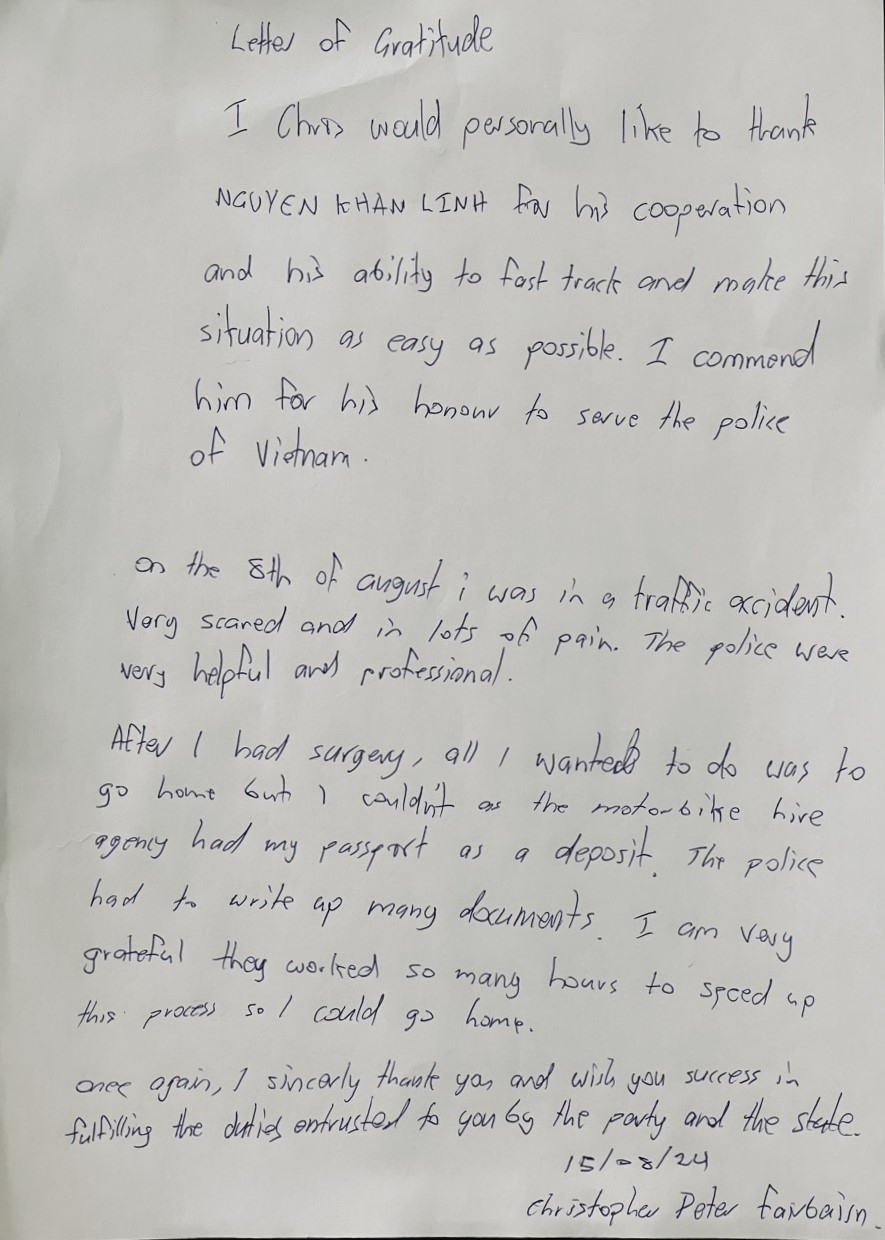 Letter of Gratitude
I Chris would personally like to thank
NGUYEN KHAN LINH for his cooperation
and his ability to fast track and make this
situation as easy as possible. I commend
him for his honour to serve the police
of Vietnam.
on the 8th of august i was in a traffic accident.
Very scared and in lots of pain. The police were
very helpful and professional.
After I had surgery, all I wanted to do was to
go home but I couldn't as the motorbike hire
agency had my passport as a deposit. The police
had to write up many documents. I am very
grateful they worked so many hours to speed up
this process so I could go home.
once again, I sincerly thank you and wish you success in
fulfilling the duties entrusted to you by the party and the state.
15/08/24
Christopher Peter Fairbairn.